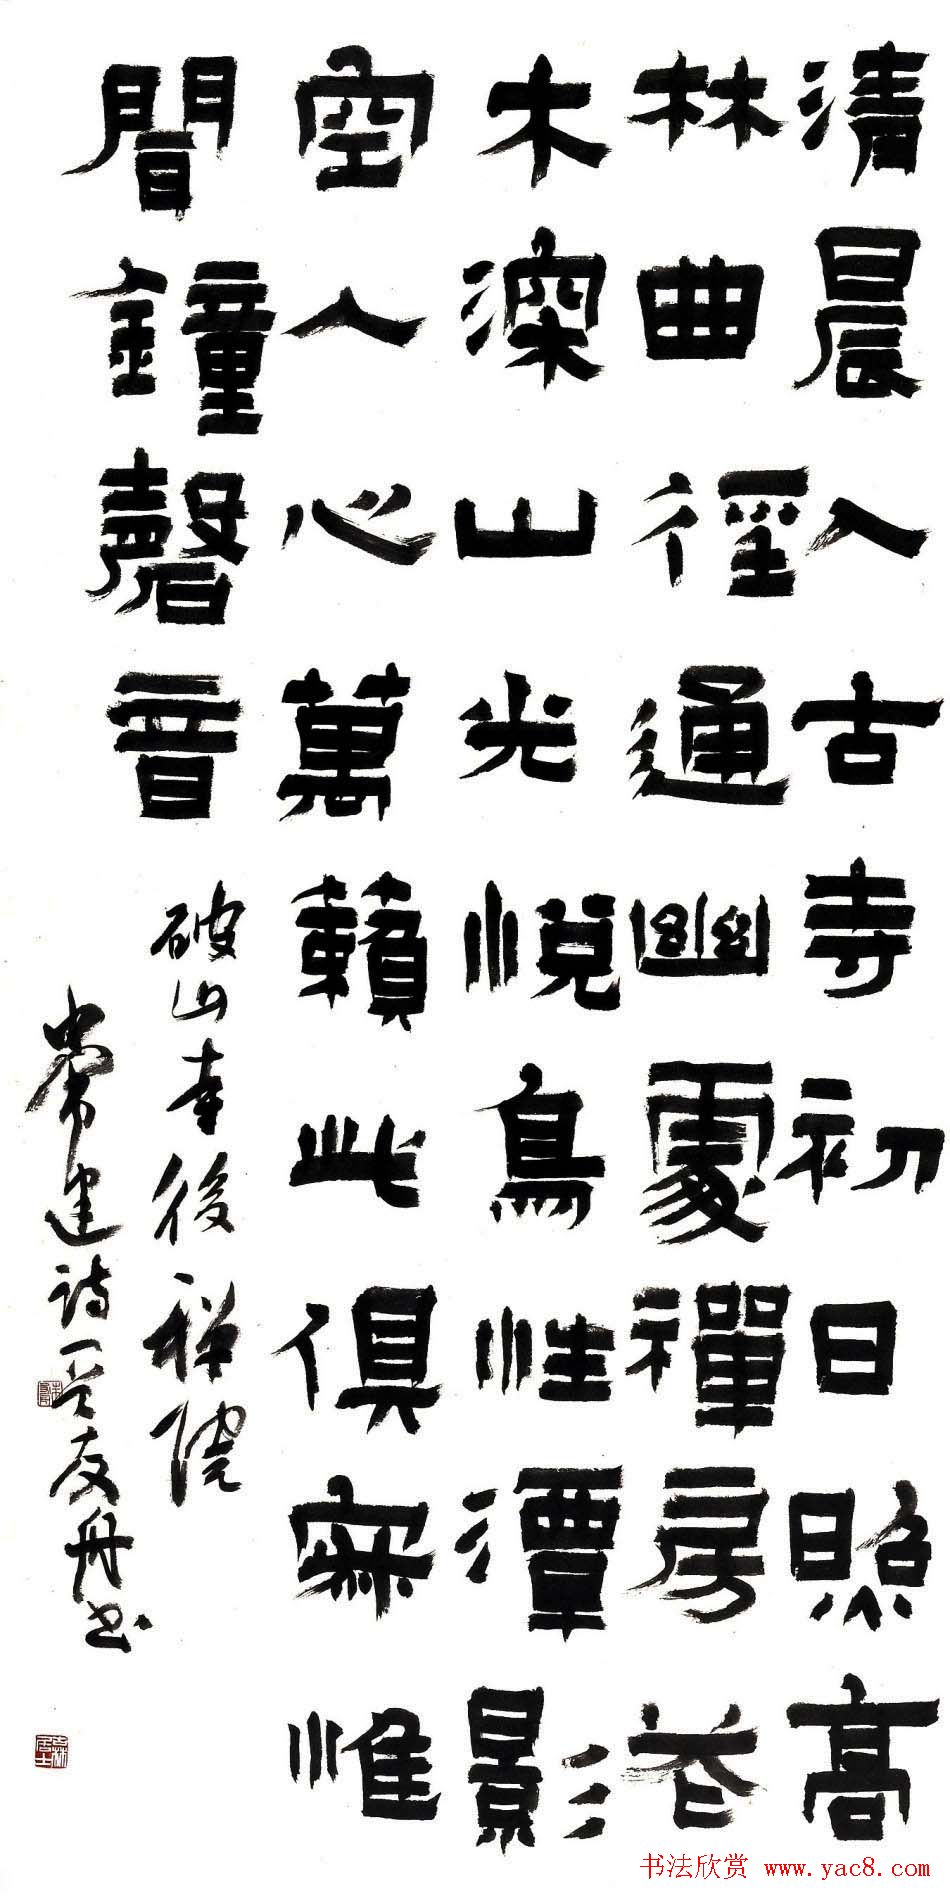 清晨入古寺初日照高
林曲徑通幽處禪房花
木深山光悦鳥性潭影
空人心萬籟此俱寂惟
聞鐘磬音
破山寺後禅院
常建诗一友舟书
书法欣赏 www.yac8.com